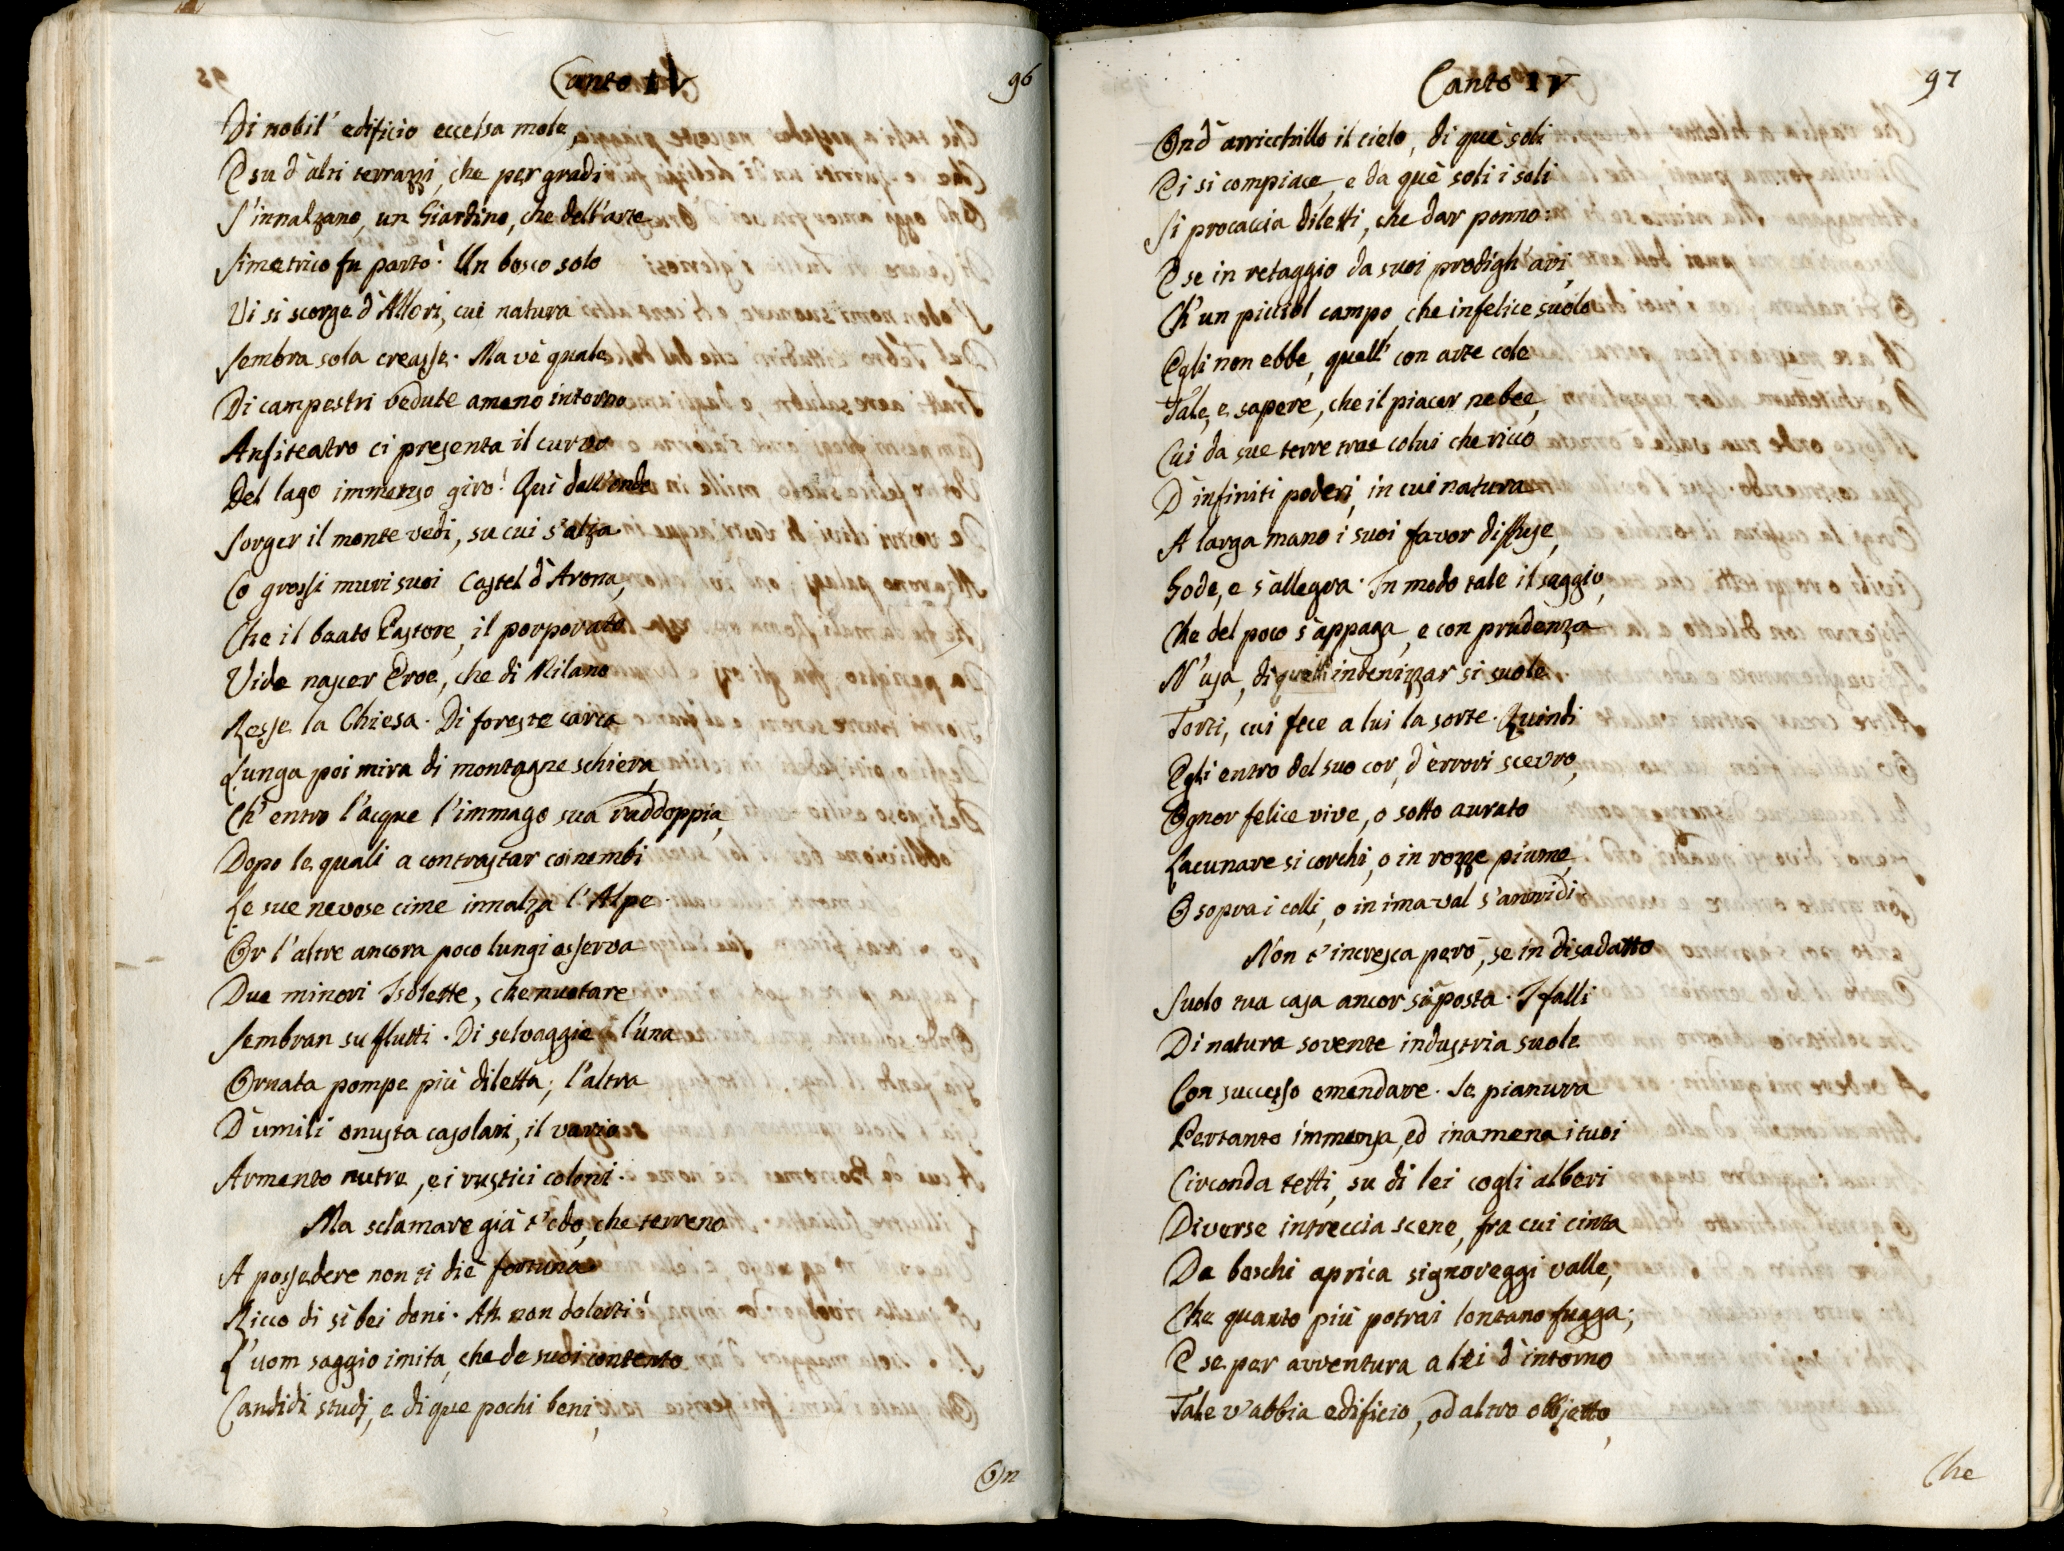 Canto IV
96
Di nobil' edificio eccelsa mole,
E su d'alti terrazzi, che per gradi
S'innalzano, un Giardino, che dell'arte
Simetrico fu parto. Un bosco solo
Vi si scorge d'Allori, cui natura
Sembra sola creasse. Ma vè quale
Di campestri vedute ameno intorno
Anfiteatro ci presenta il curvo
Del lago immenso giro! Quì dall'onde
Sorger il monte vedi, su cui s'alza
Co grossi muri suoi Castel d'Arona,
Che il beato Pastore, il porporato
Vide nascer Eroe, che di Milano
Resse la Chiesa. Di foreste carca
Lunga poi mira di montagne schiera,
Ch' entro l'acque l'immago sua raddoppia,
Dopo le quali a contrastar coi nembi
Le sue nevose cime innalza l'Alpe.
Or l'altre ancora poco lungi osserva
Due minori Isolette, che nuotare
Sembran su flutti. Di selvaggie l'una
Ornata pompe più diletta; l'altra
D'umili onusta casolari, il vario
Armento nutre, e i rustici coloni.
Ma sclamare già t'odo, che terreno
A possedere non ti diè fortuna
Ricco di sì bei doni. Ah non dolerti!
L'uom saggio imita, che de suoi contento
Candidi studj, e di que pochi beni,
On
Canto IV
97
Ond' arricchillo il cielo, di què soli
Ei si compiace, e da què soli i soli
Si procaccia diletti, che dar ponno:
E se in retaggio da suoi prodigh' avi,
Ch'un picciol campo, che infelice suolo
Egli non ebbe, quelli con arte cole
Tale, e sapere, che il piacer ne bee,
Cui da sue terre trae colui che ricco
D'infiniti poderi, in cui natura
A larga mano i suoi favor diffuse,
Gode, e s'allegra. In modo tale il saggio,
Che del poco s'appaga, e con prudenza
N'usa, di quelli indenizzar si suole
Torti, cui fece a lui la sorte. Quindi
Egli entro del suo cor, d'errori scevro,
Ognor felice vive, o sotto aurato
Lacunare si corchi, o in rozze piume,
O sopra i colli, o in ima val s'annidi.
Non t'incresca però, se in disadatto
Suolo tua casa ancor sia posta. I falli
Di natura sovente industria suole
Con successo emendare. Se pianura
Pertanto immensa, ed inamena i tuoi
Circonda tetti, su di lei cogli alberi
Diverse intreccia scene, fra cui cinta
Da boschi aprica signoreggi valle,
Che quanto più potrai lontano fugga;
E se per avventura a lei d'intorno
Tale v'abbia edificio, od altro objetto,
Che